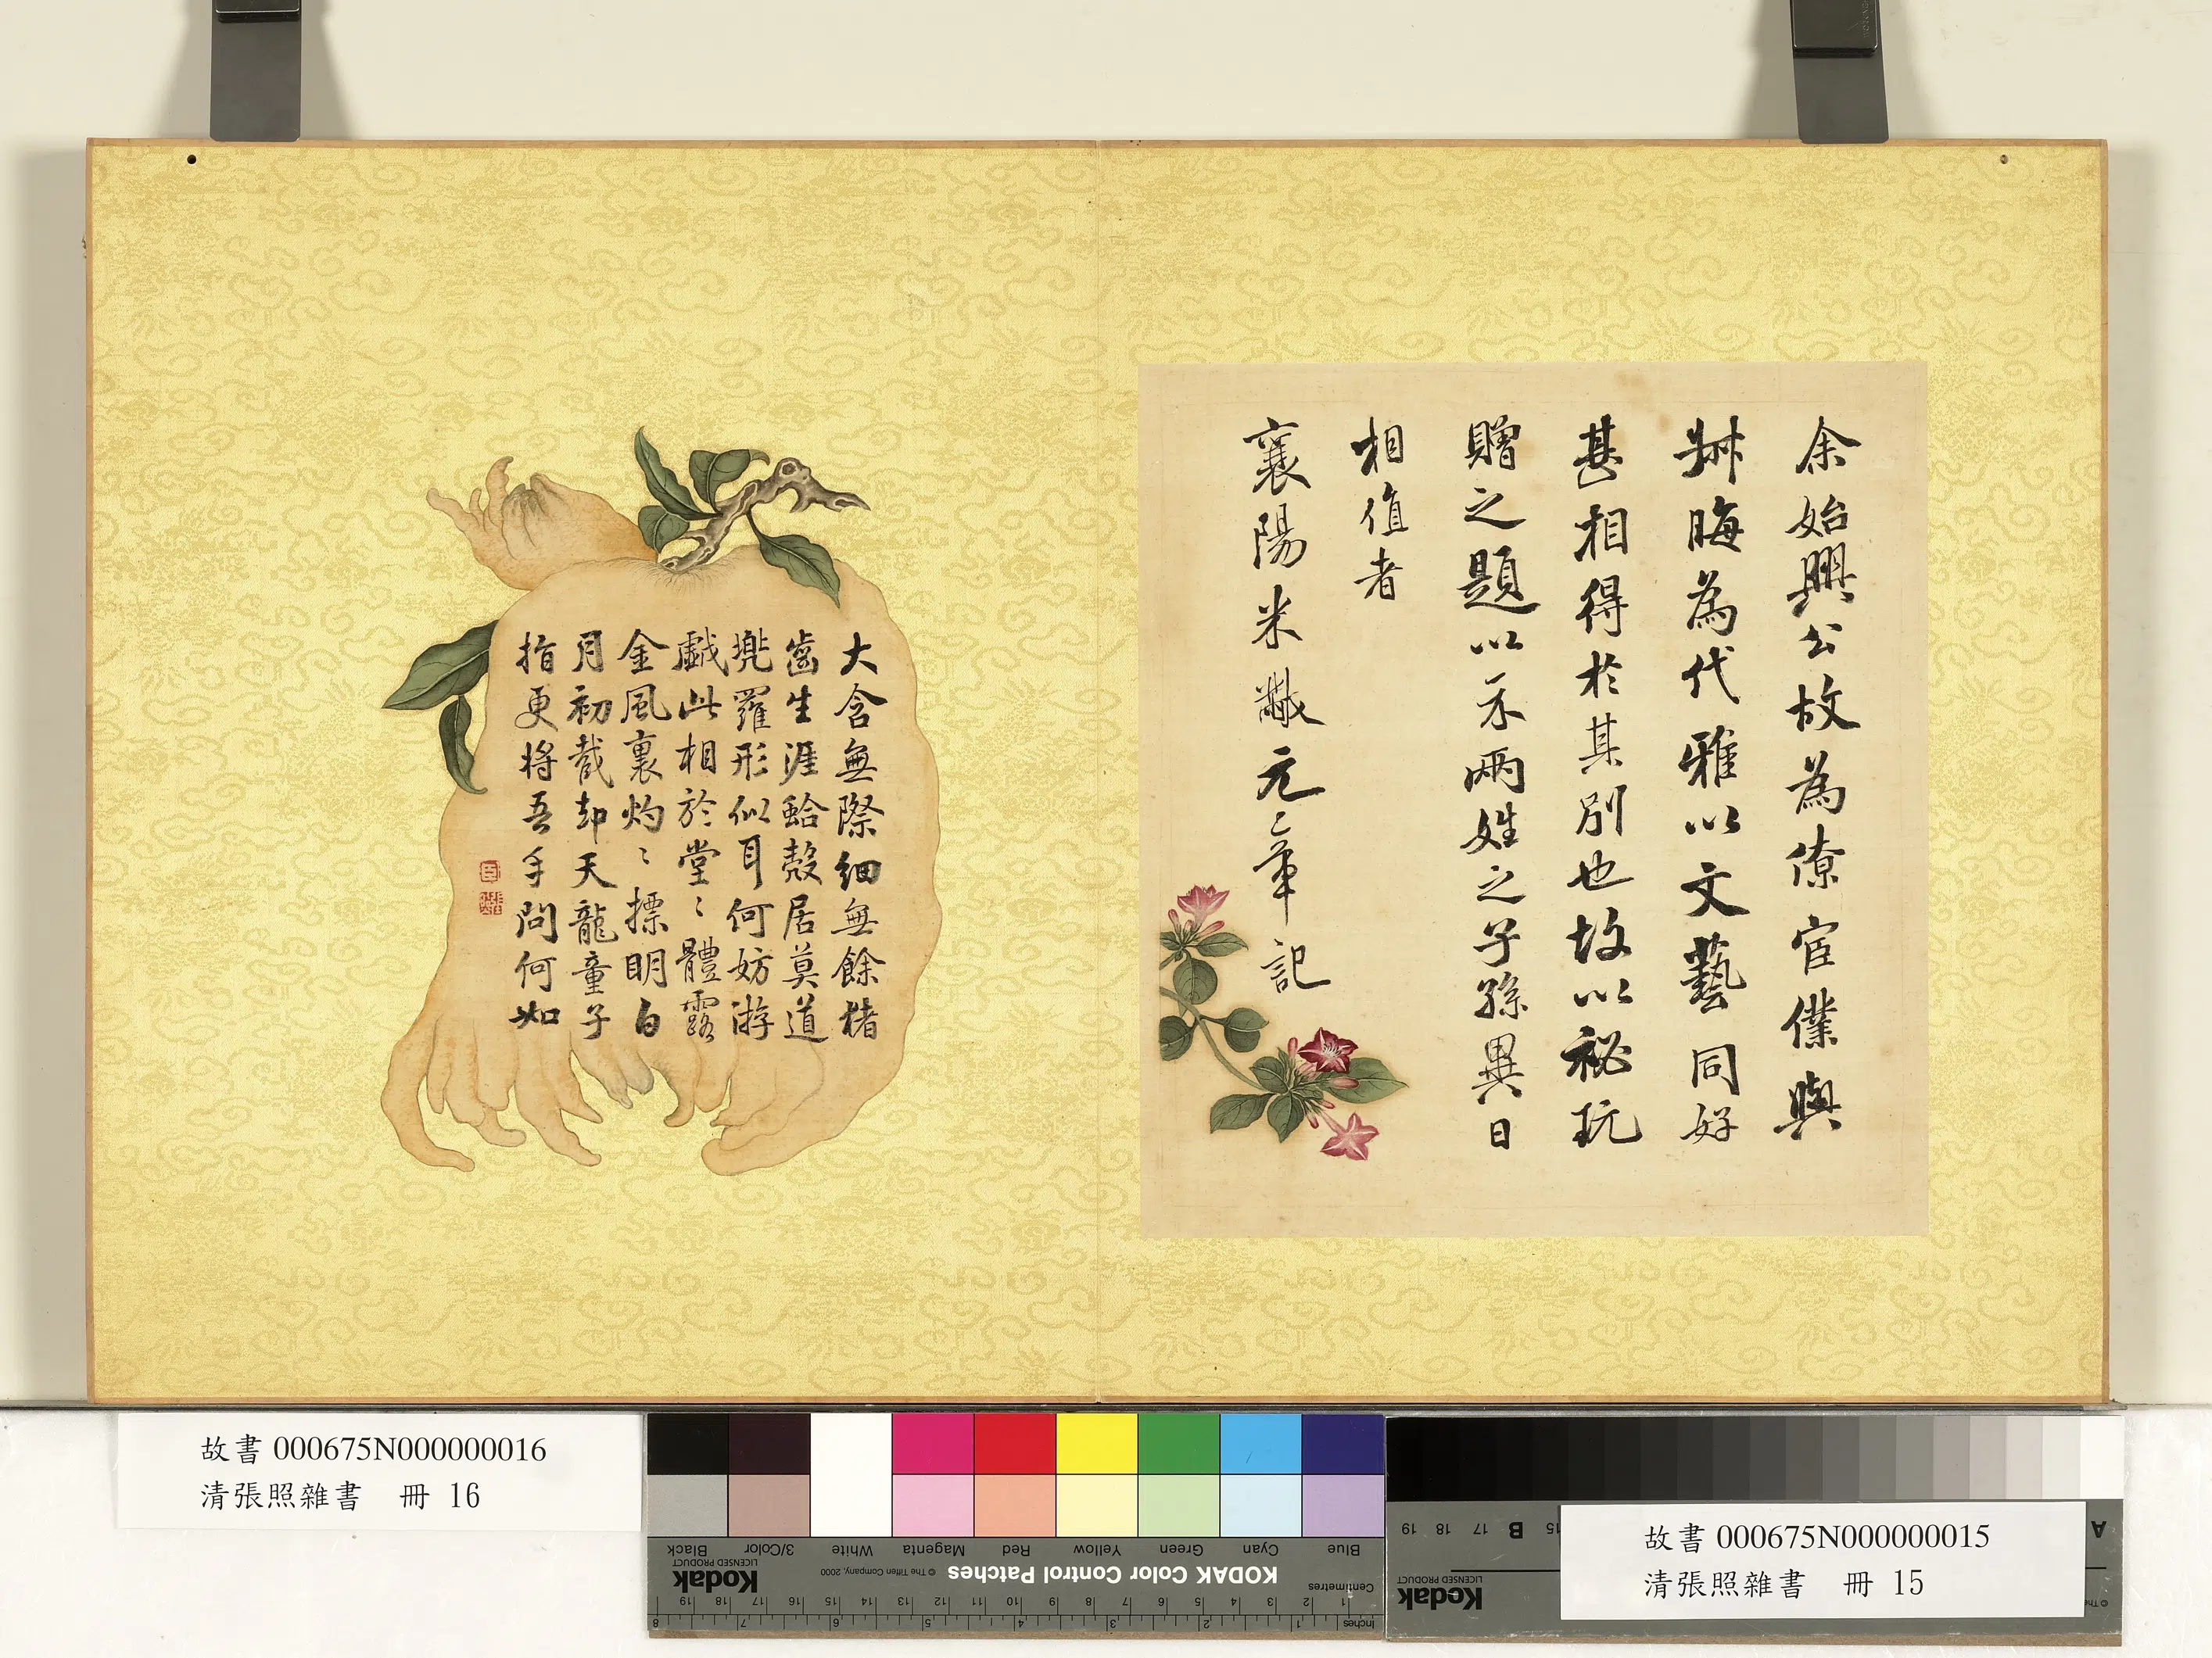 余始興公故為僚宦僕與
叔晦為代雅以文藝同好
甚相得於其別也故以祕玩
贈之題以示兩姓之子孫異日
相值者
襄陽米黻元章記
大含無際細無餘楮
齒生涯蛤殼居莫道
兜羅形似耳何妨游
戲此相於堂〻體露
金風裏灼〻摽明白
月初截却天龍童子
指更將吾手問何如
故書 000675N000000016
清張照雜書 冊 16
故書 000675N000000015
清張照雜書 冊 15
Blue Cyan Green Yellow Red Magenta White 3/Color Black
KODAK Color Control Patches
© The Tiffen Company, 2000
Kodak
LICENSED PRODUCT
Centimetres
1 2 3 4 5 6 7 8 9 10 11 12 13 14 15 16 17 18 19
Inches
1 2 3 4 5 6 7 8
A
15 B 17 18 19
Kodak
LICENSED PRODUCT